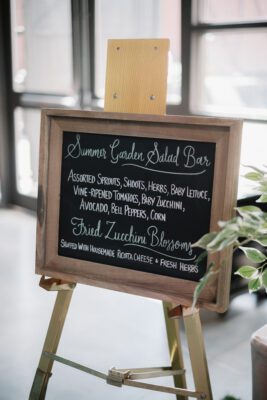 Summer Garden Salad Bar
Assorted Sprouts, Shoots, Herbs, Baby Lettuce,
Vine-Ripened Tomatoes, Baby Zucchini,
Avocado, Bell Peppers, Corn
Fried Zucchini Blossoms
Stuffed With Housemade Ricotta Cheese + Fresh Herbs